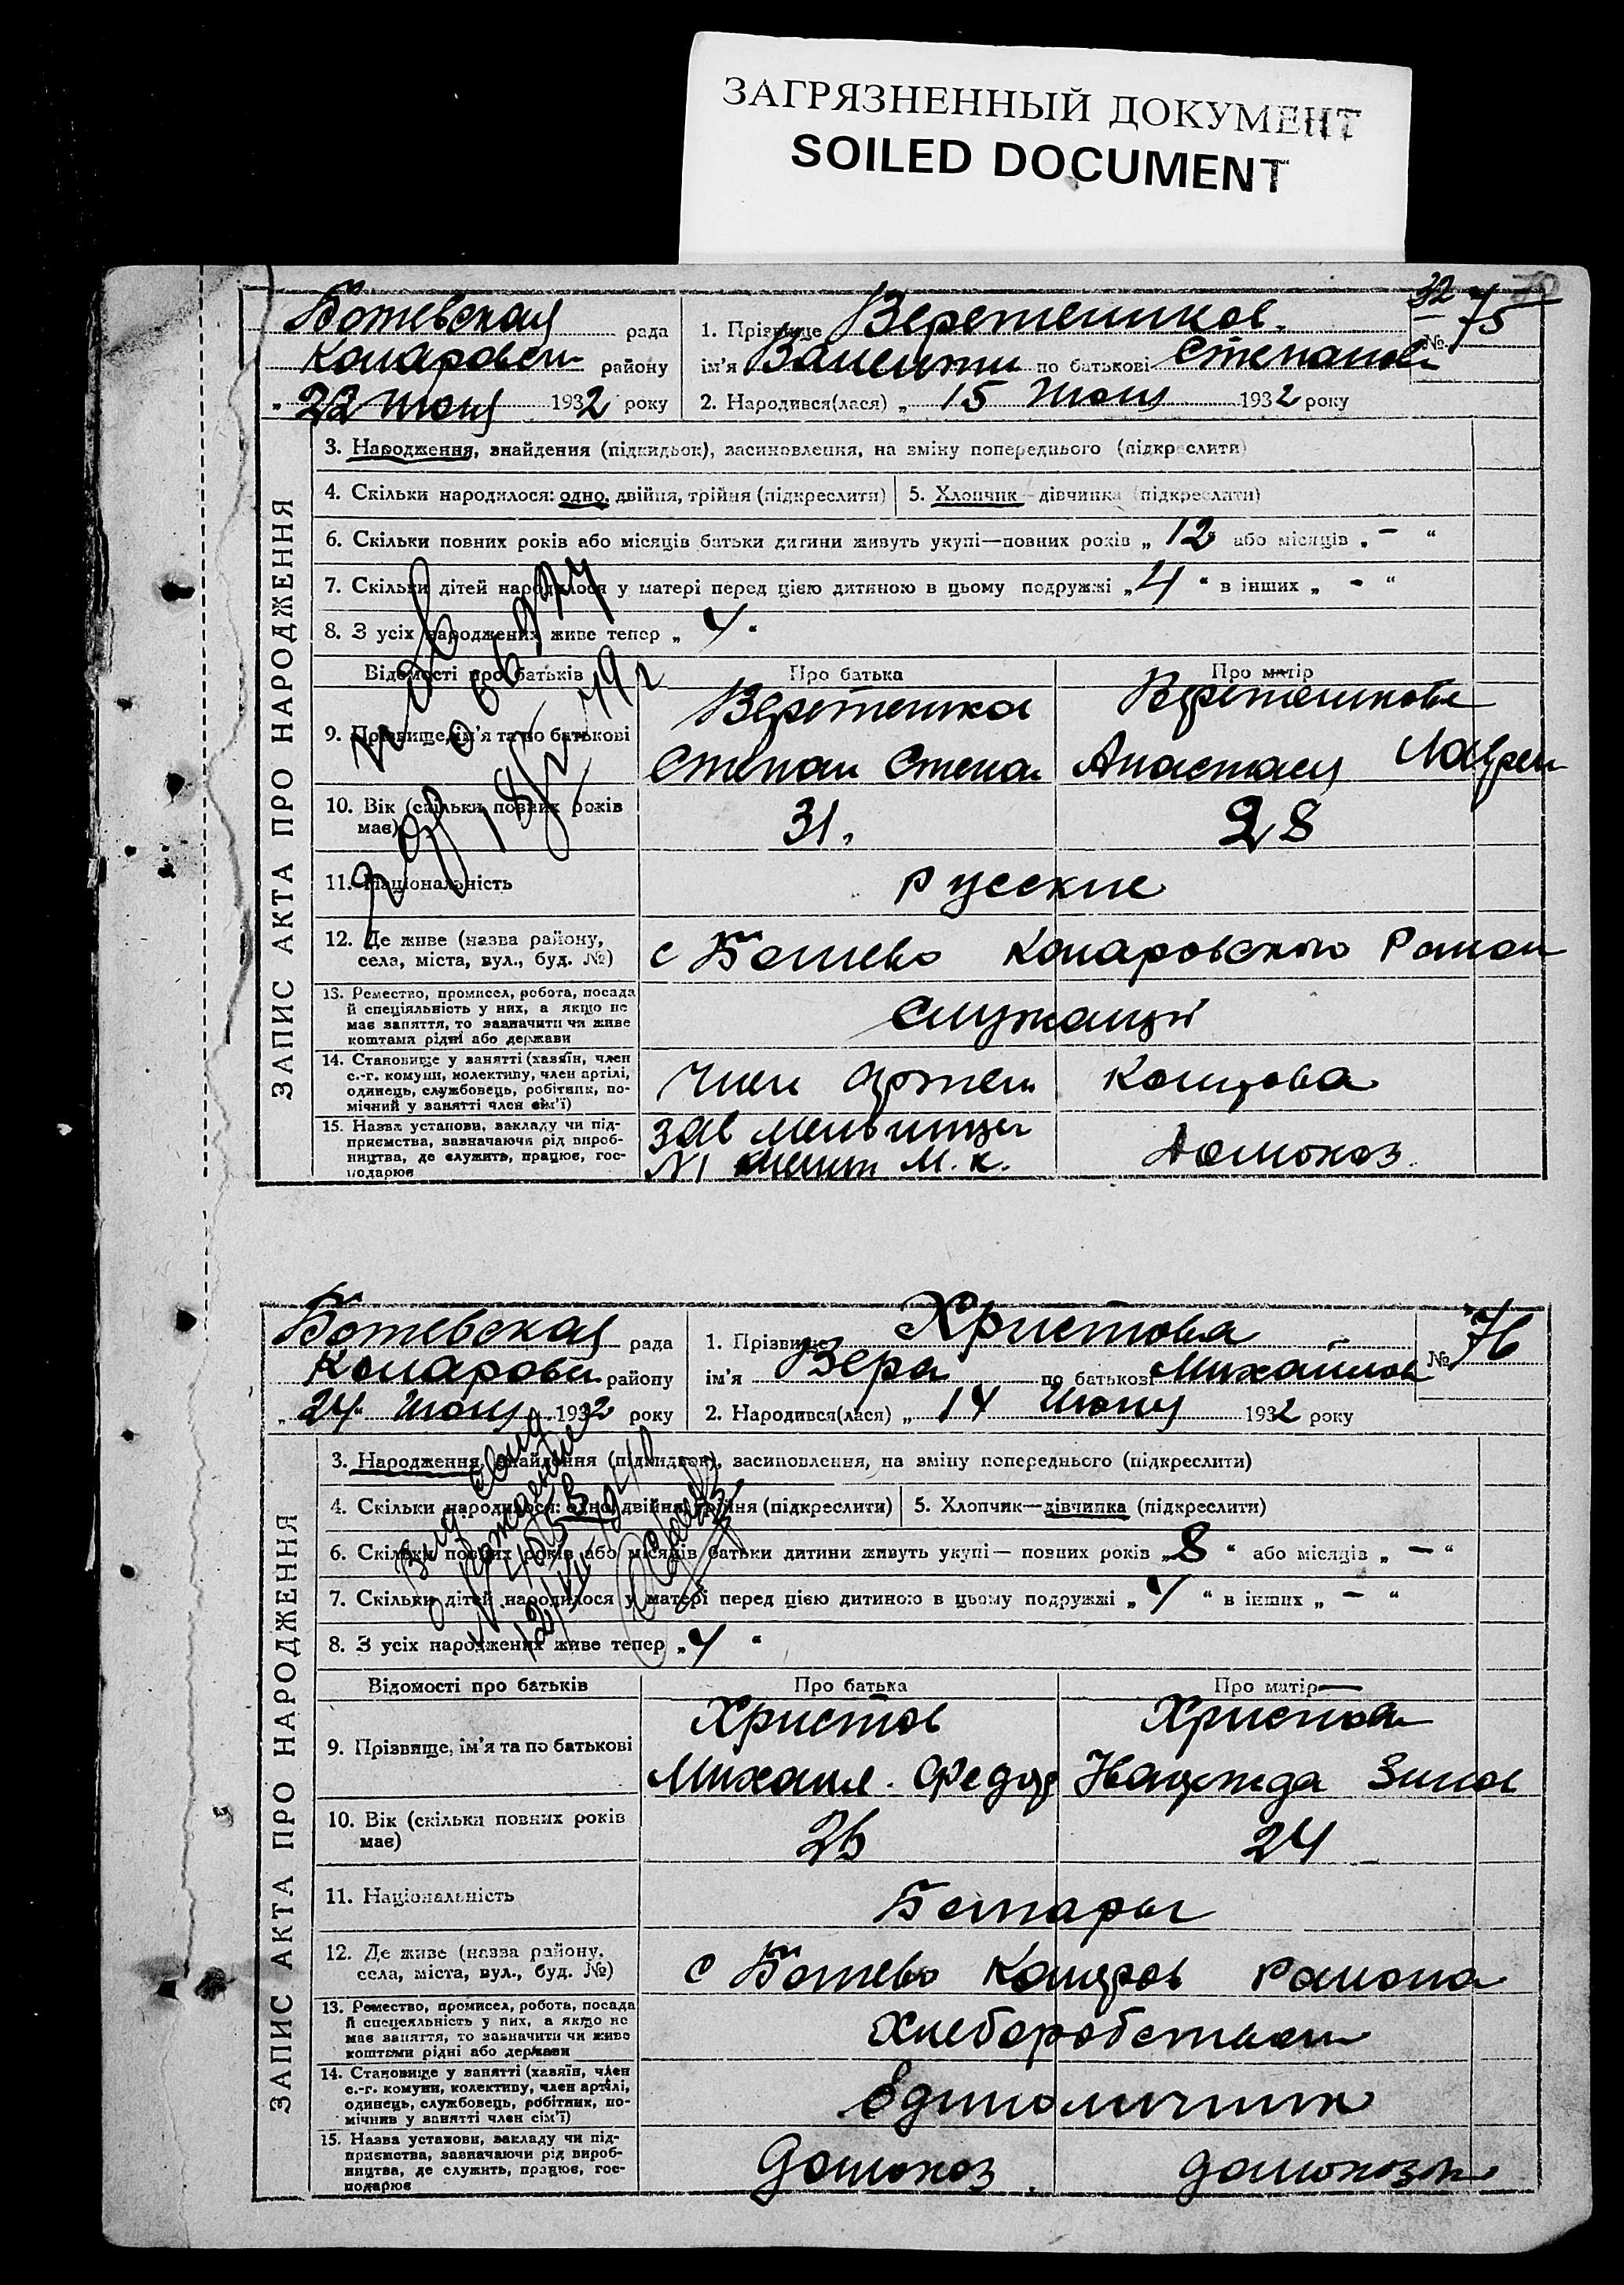 ЗАГРЯЗНЕННЫЙ ДОКУМЕНТ
SOILED DOCUMENT
32
Ботевская рада
Коларовск району
„ 22 июня 1932 року
1. Прізвище Веретеников.
№ 75
ім'я Валентин по батькові Степанов
2. Народився(лася) „ 15 июня 1932 року
ЗАПИС АКТА ПРО НАРОДЖЕННЯ
3. Народження, знайдення (підкидьок), засиновлення, на зміну попереднього (підкреслити)
4. Скільки народилося: одно, двійня, трійня (підкреслити) 5. Хлопчик—дівчинка (підкреслити)
6. Скільки повних років або місяців батьки дитини живуть укупі—повних років „ 12 або місяців „ – “
7. Скільки дітей народилося у матері перед цією дитиною в цьому подружжі „ 4 “ в інших „ – “
8. З усіх народжених живе тепер „ 4 “
Відомості про батьків Про батька Про матір
9. Прізвище, ім'я та по батькові
Веретенико Веретеникова
Степан Степан Анастасия Лаврен
10. Вік (скільки повних років має) 31, 28
11. Національність русские
12. Де живе (назва району, села, міста, вул., буд. №) с Ботево Коларовского Район
13. Ремество, промисел, робота, посада
й спеціяльність у них, а якщо не
має заняття, то зазначити чи живе
коштами рідні або держави
Служащий
14. Становище у занятті (хазяїн, член
с.-г. комуни, колективу, член артілі,
одинець, службовець, робітник, по-
мічний у занятті член сім'ї)
Член артели
15. Назва установи, закладу чи під-
приємства, зазначаючи рід вироб-
ництва, де служить, працює, гос-
подарює
зав мельницы
№1 М. к.
Домохоз.
Ботевская рада
Коларовск району
„ 24 “ июня 1932 року
1. Прізвище Христова
№ 76
ім'я Вера по батькові Михайлов
2. Народився(лася) „ 14 июня 1932 року
ЗАПИС АКТА ПРО НАРОДЖЕННЯ
3. Народження, знайдення (підкидьок), засиновлення, на зміну попереднього (підкреслити)
4. Скільки народилося: одно, двійня, трійня (підкреслити) 5. Хлопчик—дівчинка (підкреслити)
6. Скільки повних років або місяців батьки дитини живуть укупі — повних років „ 8 “ або місяців „ – “
7. Скільки дітей народилося у матері перед цією дитиною в цьому подружжі „ 4 “ в інших „ – “
8. З усіх народжених живе тепер „ 4 “
Відомості про батьків Про батька Про матір
9. Прізвище, ім'я та по батькові
Христов Христова
Михаил Федор Надежда Зинов
10. Вік (скільки повних років має) 26 24
11. Національність Болгары
12. Де живе (назва району, села, міста, вул., буд. №) с Ботево Колар﻿ов района
13. Ремество, промисел, робота, посада
й спецеяльність у них, а якщо не
має заняття, то зазначити чи живе
коштами рідні або держави
Хлеборобством
14. Становище у занятті (хазяїн, член
с.-г. комуни, колективу, член артілі,
одинець, службовець, робітник, по-
мічник у занятті член сім'ї)
Единоличник
15. Назва установи, закладу чи під-
приємства, зазначаючи рід вироб-
ництва, де служить, працює, гос-
подарює
Домохоз. домохозяйк